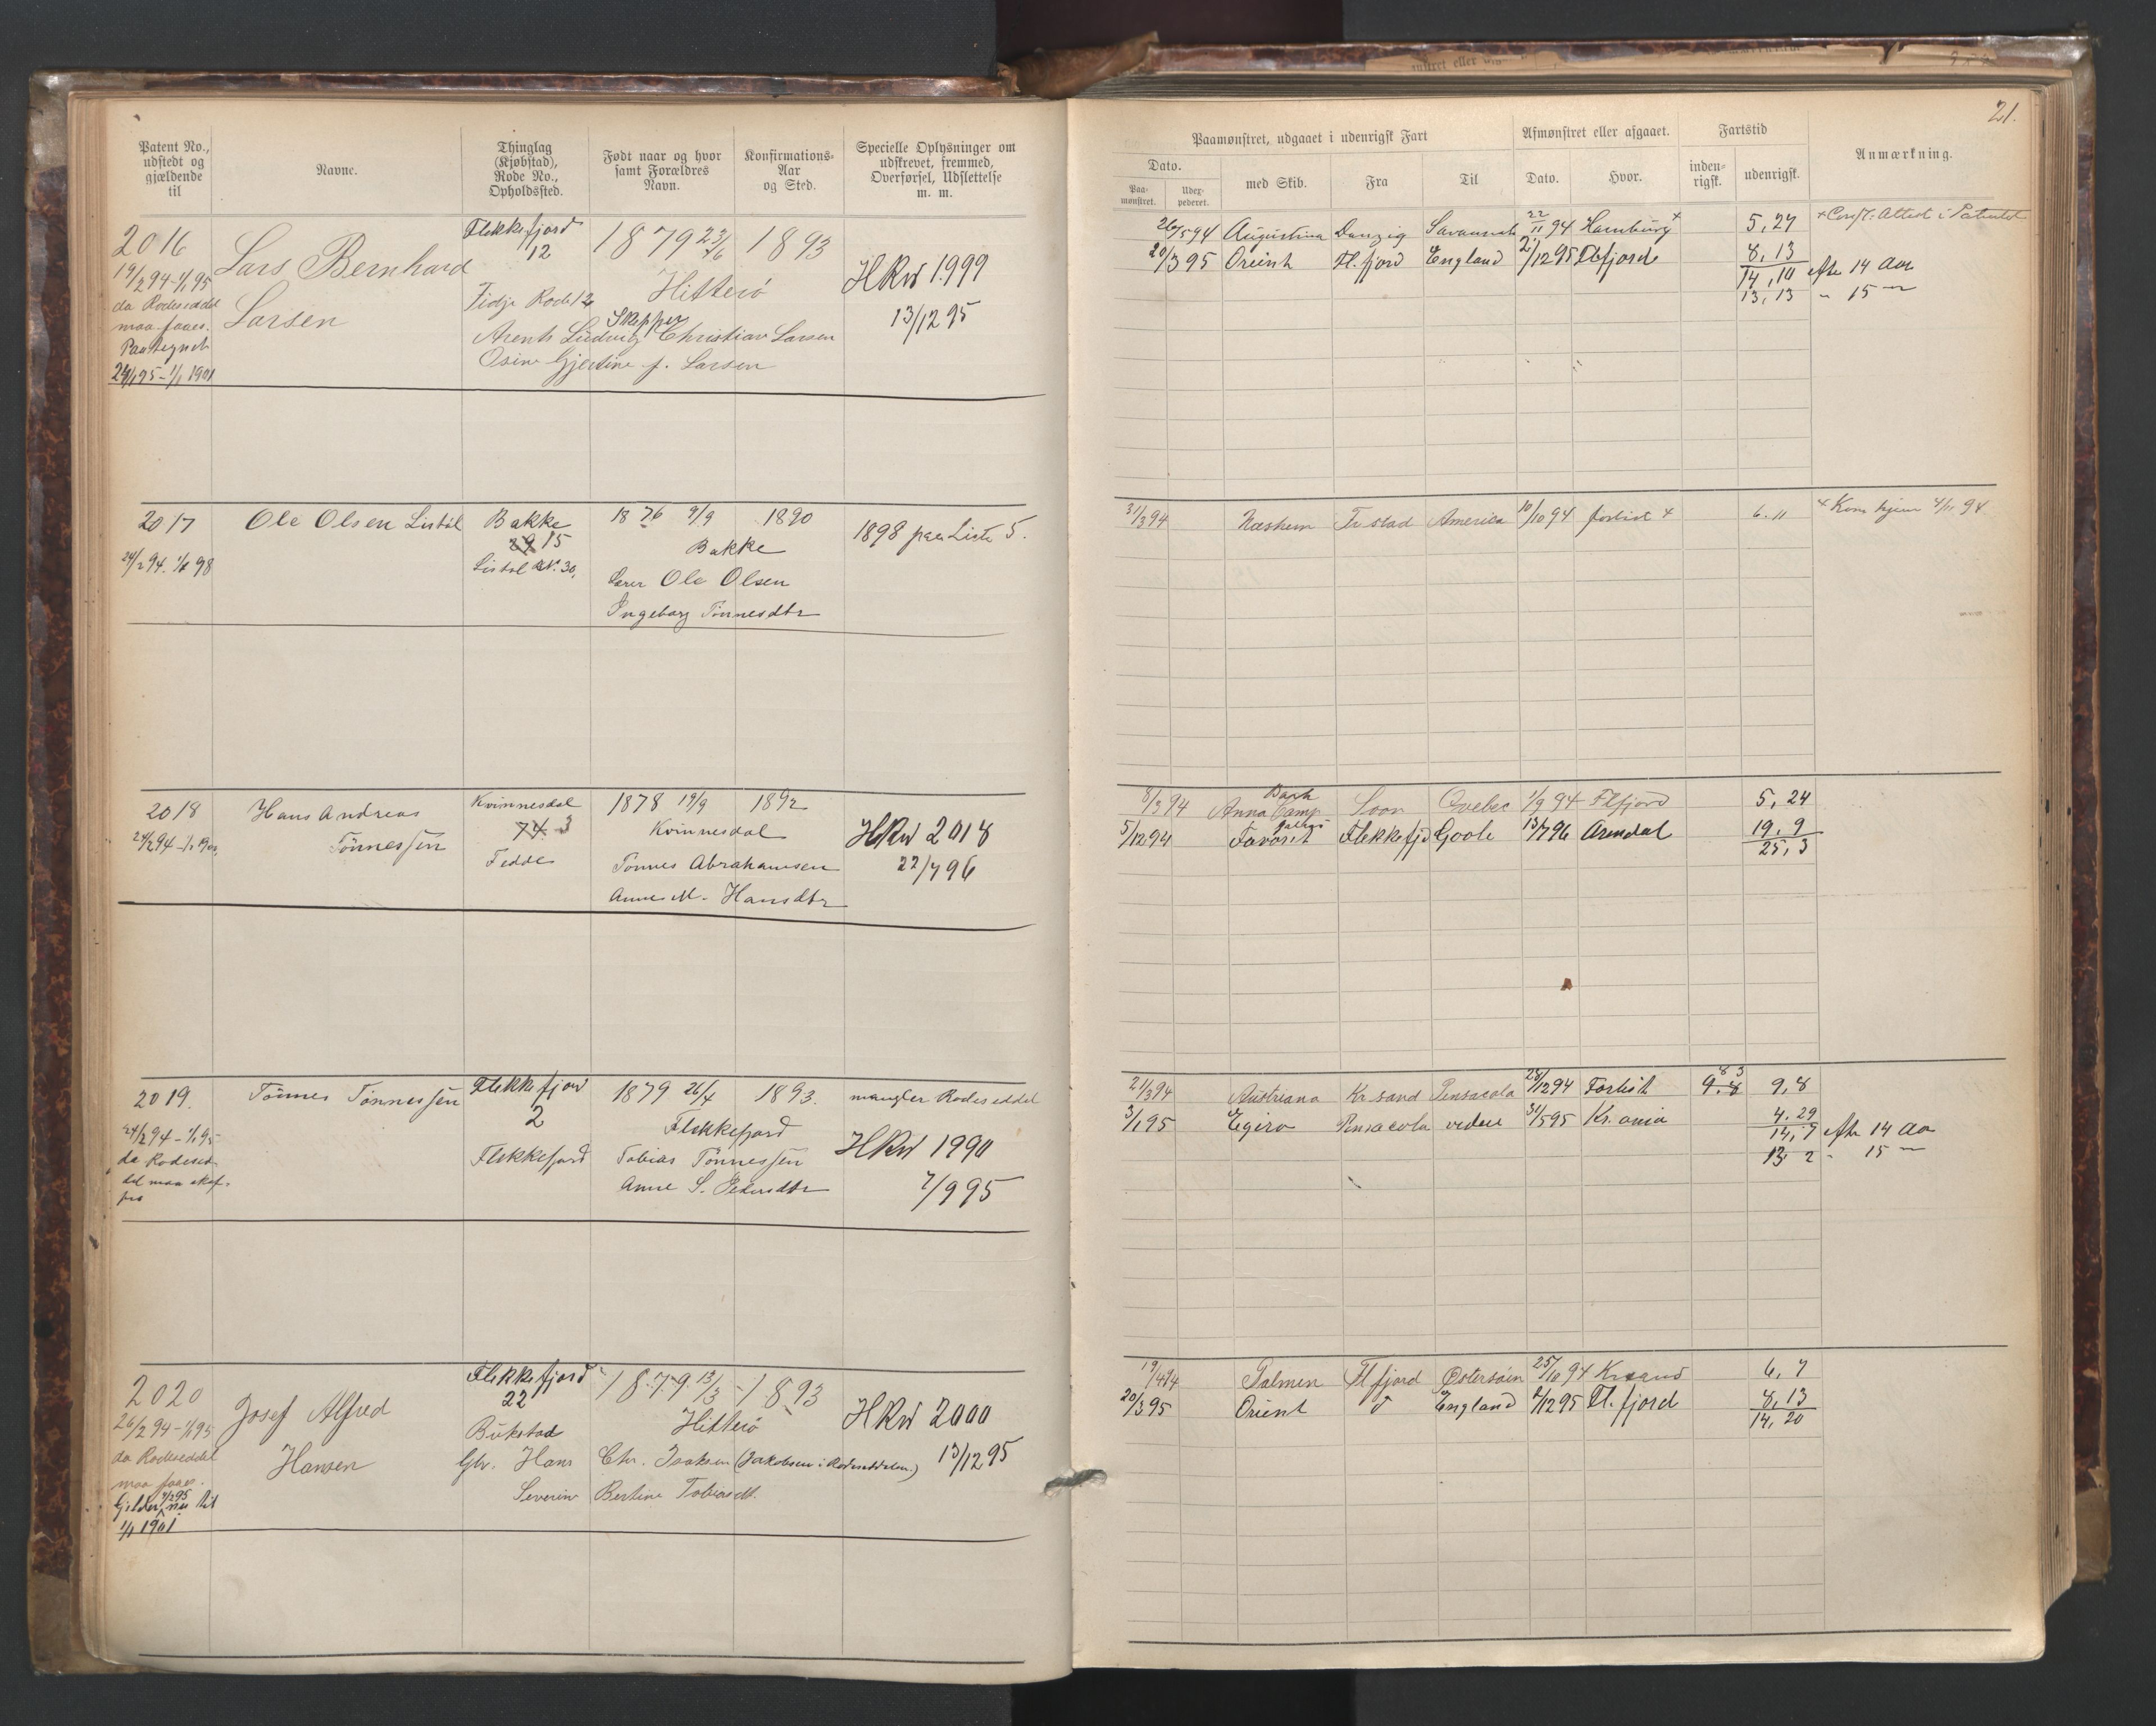 21.
Patent No., udstedt og gjældende til
Navne.
Thinglag (Kjøbstad), Rode No., Opholdssted.
Født naar og hvor samt Forældres Navn.
Konfirmations-Aar og Sted.
Specielle Oplysninger om udskrevet, fremmed, Overførsel, Udslettelse m. m.
Paamønstret, udgaaet i udenrigsk Fart
Afmønstret eller afgaaet.
Fartstid
Anmærkning.
Dato.
Paa-mønstret.
Udex-pederet.
med Skib.
Fra
Til
Dato.
Hvor.
inden-rigsk.
udenrigsk.
2016
19/2 94 - 1/1 95
da Rodeseddel
maa faaes.
Paategnet
1/1 1901
Lars Bernhard
Larsen
Flekkefjord
12
Fidje Rode 12
1879 23/6
1893
Hitterø
Skipper
Arent Ludvig Christian Larsen
Osine Gjertine f. Larsen
HRw 1999
13/12 95
26/5 94 Augustina Danzig Savannah 22/11 94 Hamburg + 5,27
20/3 95 Orient Fl.fjord England 2/12 95 Flfjord 8,13
14,10 efter 14 Aar
13,13 " 15 "
2017
24/2 94. 1/1 98
Ole Olsen Listøl
Bakke
29 15
Listøl No. 30,
1876 9/9
1890
Bakke
Ole Olsen
Ingeborg Tønnesdtr
1898 paa Liste 5.
31/3 94 Næskem Fr.stad America 10/10 94 forlist + 6.11 + Kom hjem 4/11 94
2018
24/2 94
Hans Andreas
Tønnessen
Kvinnesdal
74. 3
Fedde
1878 19/9
1892
Kvinnesdal
Tønnes Abrahamsen
Anne M. Hansdtr
HRw 2018
22/7 96
Bark
8/3 94 Anna Camp Soon Qvebec 1/9 94 Flfjord 5,24
5/12 94 Favorit Flekkefjd Goole 13/7 96 Arendal 19,9
25,3
2019.
24/2 94 - 1/1 95
da Rodesed-
del maa skaf-
fes
Tønnes Tønnessen
Flekkefjord
2
Flekkefjord
1879 26/4
1893.
Flekkefjord
Tobias Tønnessen
Anne S. Pedersdtr
mangler Rodeseddel
HRw 1990
7/9 95
8 3
21/3 94 Austriana Kr.sand Pensacola 28/12 94 Forlist 9.8 9,8
3/1 95 Egira Pensacola videre 31/5 95 Kr.ania 4.29
14,7 efter 14 Aa
13, 2 " 15 "
2020
26/2 94 - 1/1 95
da Rodeseddel
maa faaes.
Gjelder nu til
1/1 1901
Josef Alfred
Hansen
Flekkefjord
22
Bukstad
1879 13/3
1893
Hitterø
Gbr. Hans Chr. Isaksen (Jakobsen i Rodeseddelen)
Severine Bertine Tobiasdt.
HRw 2000
13/12 95
19/4 94 Palmen Fl fjord Østersøen 25/10 94 Krsand 6,7
20/3 95 Orient England 2/12 95 Fl.fjord 8,13
14,20